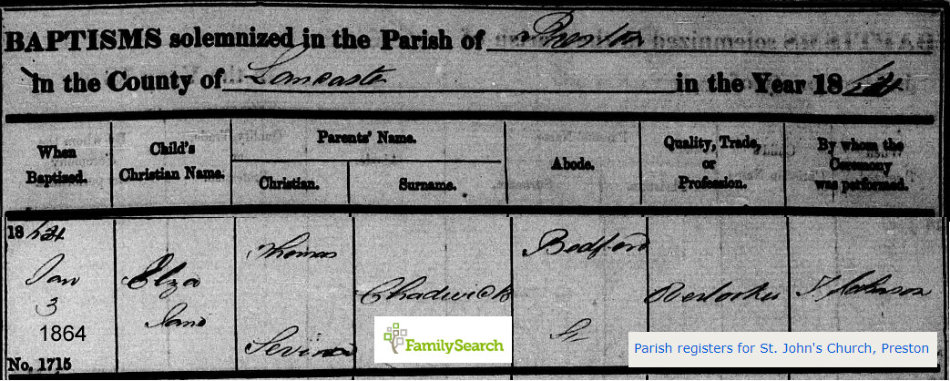 BAPTISMS solemnized in the Parish of Preston
in the County of Lancaster in the Year 1864
When Baptised.
Child's Christian Name.
Parents' Name.
Christian.
Surname.
Abode.
Quality, Trade, or Profession.
By whom the Ceremony was performed.
1864
Jan
3
1864
No. 1715
Eliza
Jane
Thomas
Chadwick
Bedford
St
Overlooker
FamilySearch
Parish registers for St. John's Church, Preston